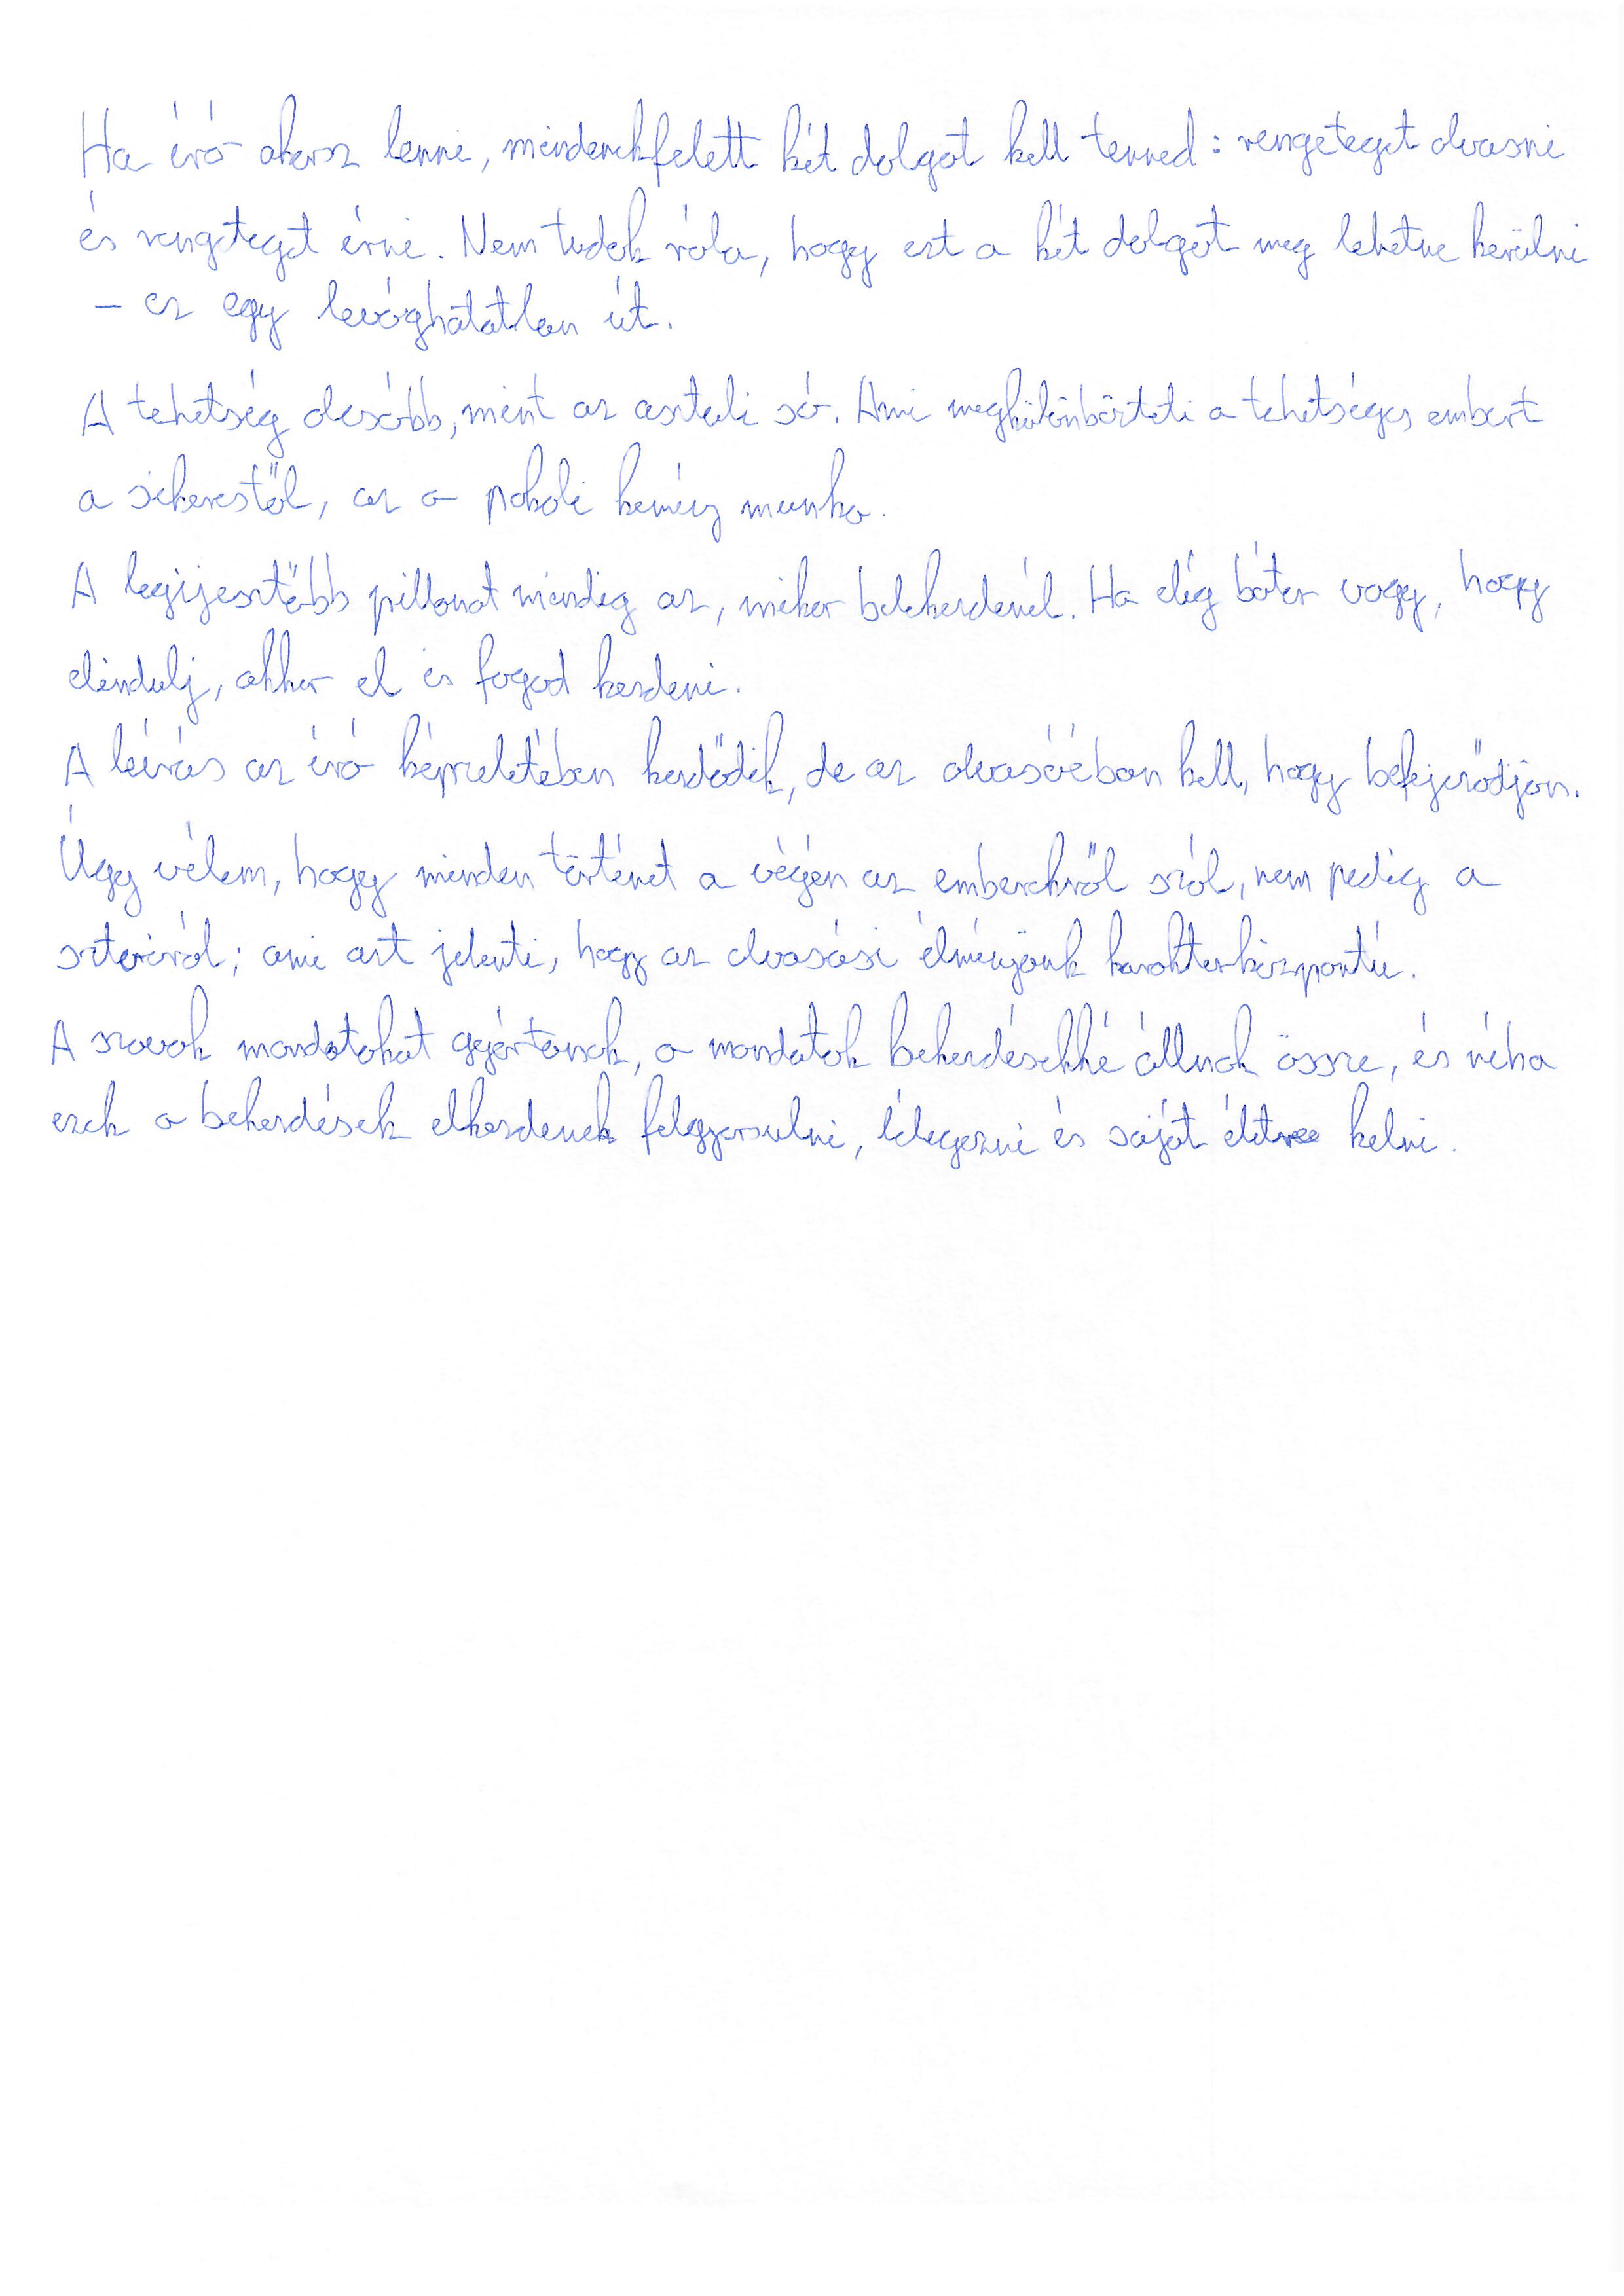 Ha író akarsz lenni, mindenekfelett két dolgot kell tenned: rengeteget olvasni
és rengeteget írni. Nem tudok róla, hogy ezt a két dolgot meg lehetne kerülni
– ez egy levághatatlan út.
A tehetség olcsóbb, mint az asztali só. Ami megkülönbözteti a tehetséges embert
a sikerestől, az a pokoli kemény munka.
A legijesztőbb pillanat mindig az, mikor belekezdenél. Ha elég bátor vagy, hogy
elindulj, akkor el is fogod kezdeni.
A leírás az író képzeletében kezdődik, de az olvasóéban kell, hogy befejeződjön.
Úgy vélem, hogy minden történet a végén az emberekről szól, nem pedig a
sztoriról; ami azt jelenti, hogy az olvasási élményünk karakterközpontú.
A szavak mondatokat gyártanak, a mondatok bekezdésekké állnak össze, és néha
ezek a bekezdések elkezdenek felgyorsulni, lélegezni és saját életre kelni.